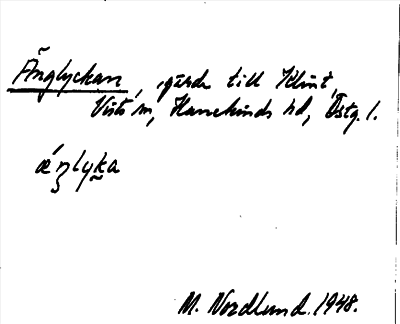 Änglyckan, gärde till Klint,
Vists sn, Hanekinds hd, Östg. l.
ǽŋlyka
M. Nordlund. 1948.